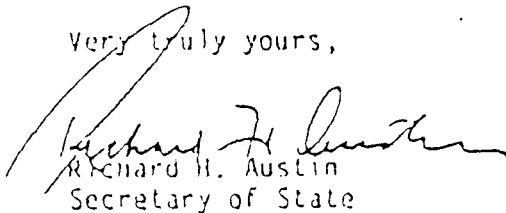 Very truly yours,
Richard H. Austin
Richard H. Austin
Secretary of State